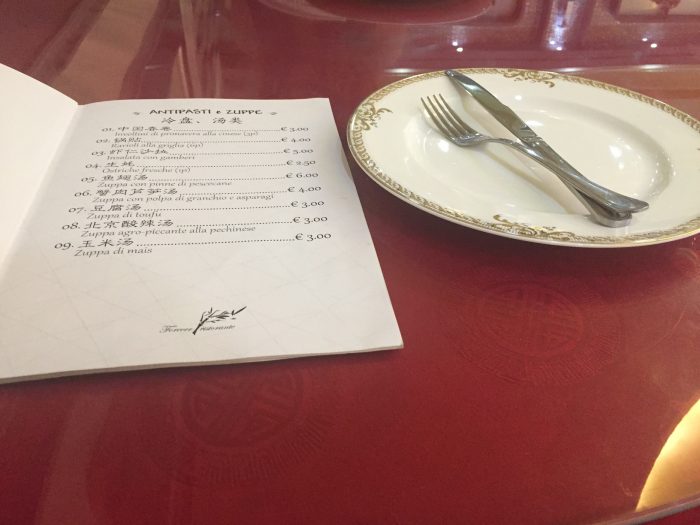 ANTIPASTI e ZUPPE
冷盘、汤类
01. 中国春卷 € 3.00
Involtini di primavera alla cinese (2p)
02. 锅贴 € 4.00
Ravioli alla griglia (6p)
03. 虾仁沙拉 € 5.00
Insalata con gamberi
04. 生蚝 € 2.50
Ostriche fresche (1p)
05. 鱼翅汤 € 6.00
Zuppa con pinne di pescecane
06. 蟹肉芦笋汤 € 4.00
Zuppa con polpa di granchio e asparagi
07. 豆腐汤 € 3.00
Zuppa di toufu
08. 北京酸辣汤 € 3.00
Zuppa agro-piccante alla pechinese
09. 玉米汤 € 3.00
Zuppa di mais
Forever ristorante